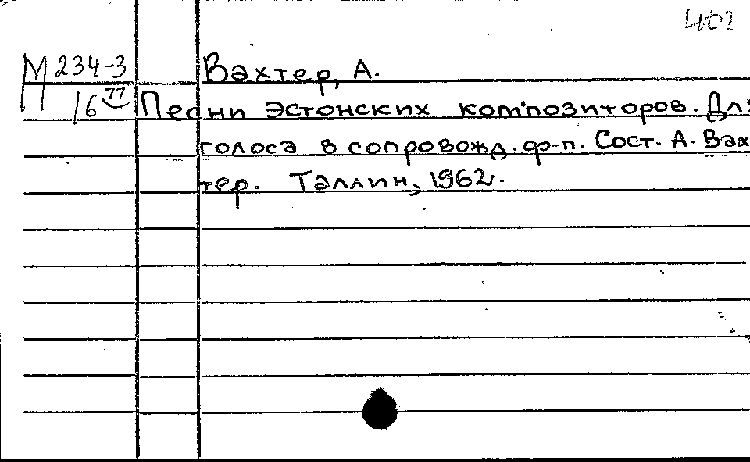 402
М 234-3 Вахтер, А.
16 77 Песни эстонских композиторов. Для
голоса в сопровожд. ф-п. Сост. А. Вах
тер. Таллин, 1962.